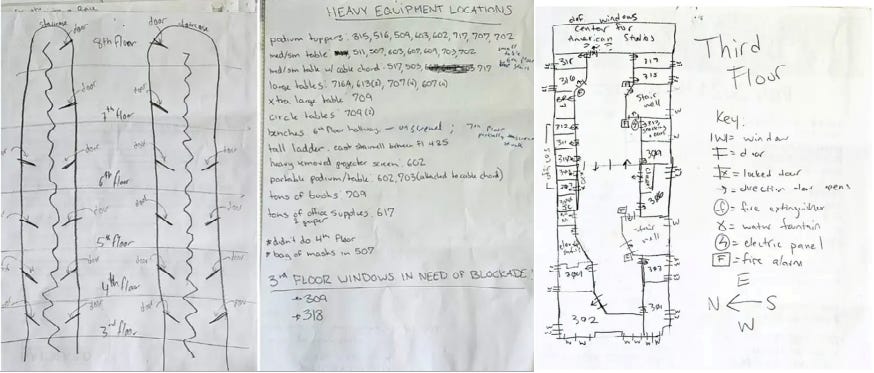 staircase
door
door
staircase
8th floor
door
door
7th floor
door
door
door
door
6th floor
door
door
door
5th floor
door
door
door
4th floor
door
door
door
3rd floor
HEAVY EQUIPMENT LOCATIONS
podium toppers: 315, 516, 509, 603, 602, 717, 707, 702
med/sm table: 511, 507, 603, 607, 609, 703, 702
small table
med/sm table w/ cable chord: 517, 503, 717
large tables: 716A, 613(2), 707(4), 607(2)
xtra large table 709
circle tables: 709(2)
benches 6th floor hallway - unscrewed; 7th floor partially unscrewed
tall ladder: east stairwell between Fl 4&5
heavy removed projector screen: 602
portable podium/table: 602, 703 (attached to cable chord)
tons of books 709
tons of office supplies 617
& paper
*didn't do 4th floor
*bag of masks in 507
3rd FLOOR WINDOWS IN NEED OF BLOCKADE:
→ 309
→ 318
windows
Center for
American Studies
???
318
317
316
315
stair
well
312
311
309
306
stair
well
303
301
302
Third
Floor
Key:
W = window
= door
= locked door
→ = direction door opens
= fire extinguisher
= water fountain
= electric panel
F = fire alarm
E
N ← S
W